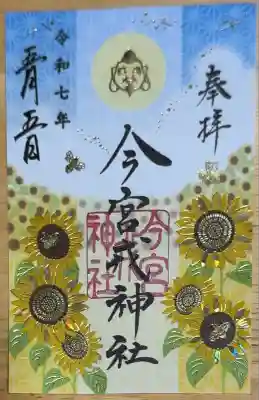 奉拝
今宮戎神社
令和七年
今宮
戎
神社